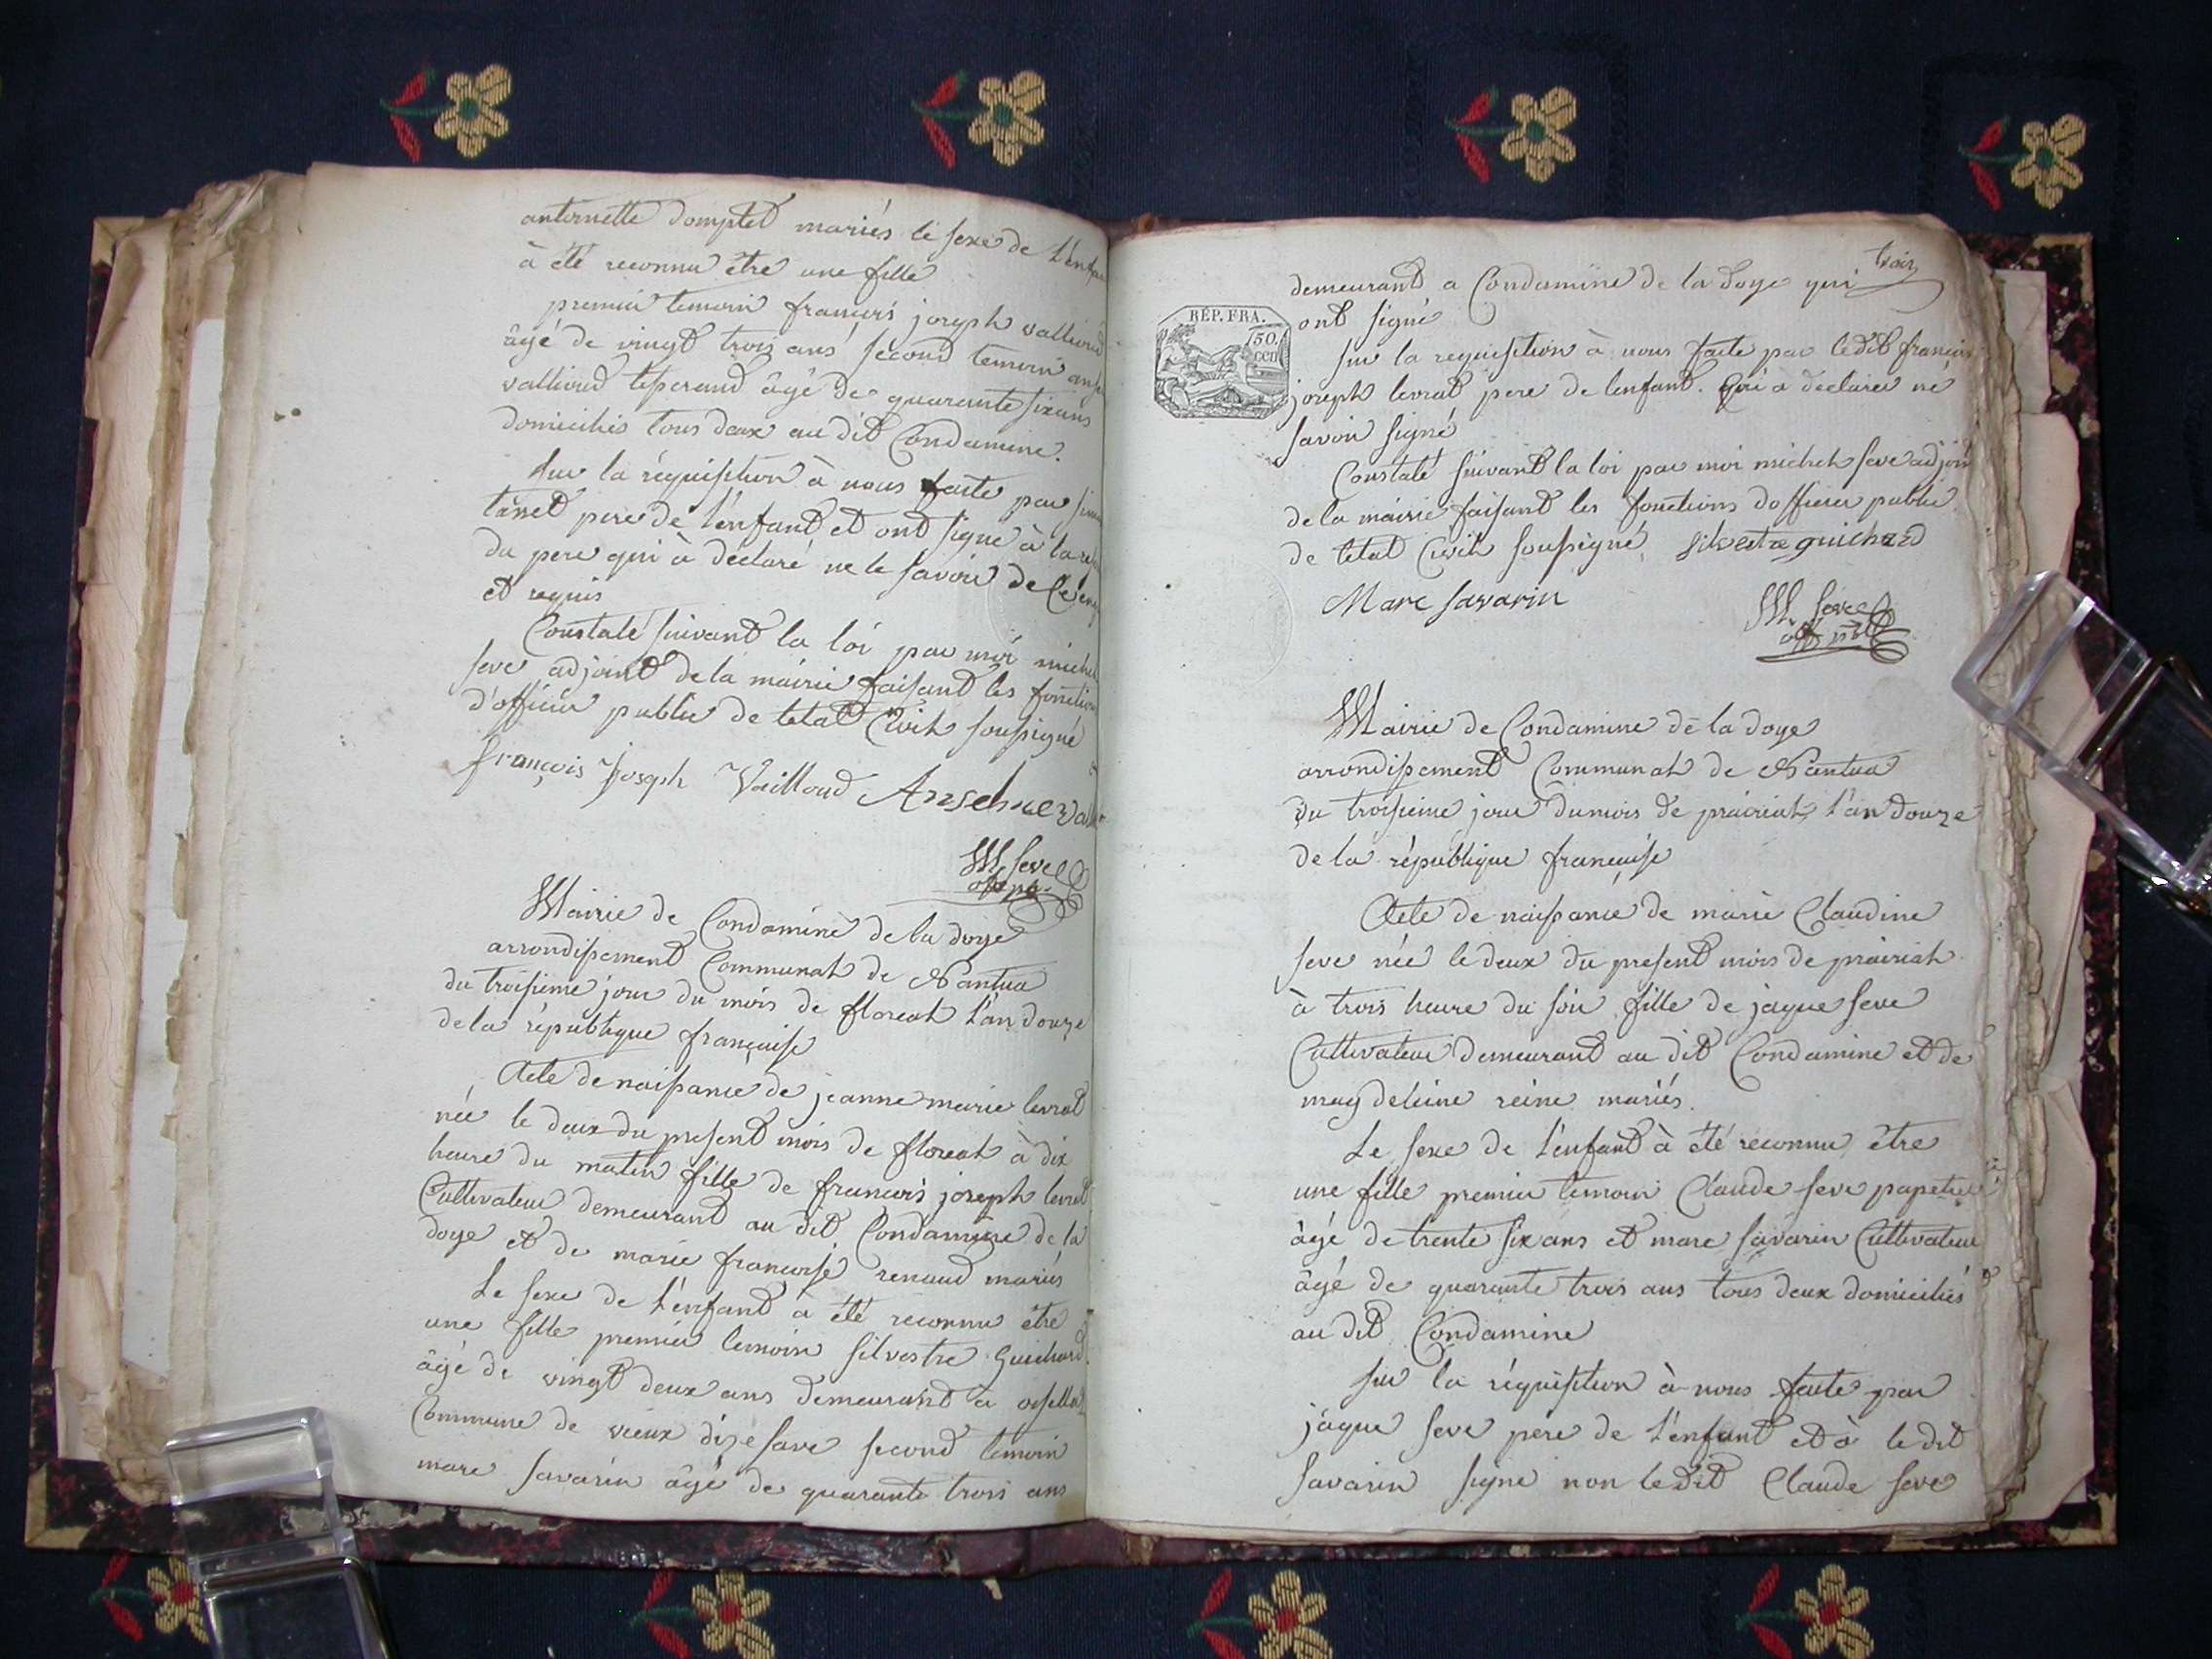 antoinette domptet mariés le sexe de l'enfan
à été reconnu être une fille
premier temoin françois joseph vallioud
âgé de vingt trois ans second temoin
vallioud âgé de quarante six ans
domiciliés tous deux au dit Condamine.
Sur la réquisition à nous faite par
tanet pere de l'enfant et ont signé à la
du pere qui à déclaré ne le savoir de ce
et requis
Constaté suivant la loi par moi michel
seve adjoint de la mairie faisant les fonction
d'officier public de letat Civil soussigné
françois joseph Vailloud Anselme
M. Seve
Mairie de Condamine de la doye
arrondissement Communal de Nantua
du troisieme jour du mois de floreal l'an douze
de la république française
Acte de naissance de jeanne marie levrat
née le deux du present mois de floreal à dix
heure du matin fille de françois joseph levrat
Cultivateur demeurant au dit Condamine de la
doye et de marie françoise renaud mariés
Le sexe de l'enfant à été reconnu être
une fille premier temoin silvestre Guichard
âgé de vingt deux ans demeurant a
Commune de vieux second temoin
marc savarin âgé de quarante trois ans
trois
demeurant a Condamine de la doye qui
ont signé
RÉP. FRA.
50.
CEN
Sur la requisition à nous faite par ledit françois
joseph levrat pere de lenfant. Qui a declarer ne
savoir signé
Constaté suivant la loi par moi michel seve adjoin
de la mairie faisant les fonctions dofficier public
de letat Civil soussigné silvestre guichard
Marc savarin
M. Seve
Mairie de Condamine de la doye
arrondissement Communal de Nantua
du troisieme jour du mois de prairial l'an douze
de la république française
Acte de naissance de marie Claudine
seve née le deux du present mois de prairial
à trois heure du soir fille de jaque seve
Cultivateur demeurant au dit Condamine et de
magdeleine reine mariés.
Le sexe de l'enfant à été reconnu être
une fille premier temoin Claude seve papetier
âgé de trente six ans et marc savarin Cultivateur
âgé de quarante trois ans tous deux domiciliés
au dit Condamine
Sur la réquisition à nous faite par
jaque seve pere de l'enfant et à le dit
savarin signé non ledit Claude seve